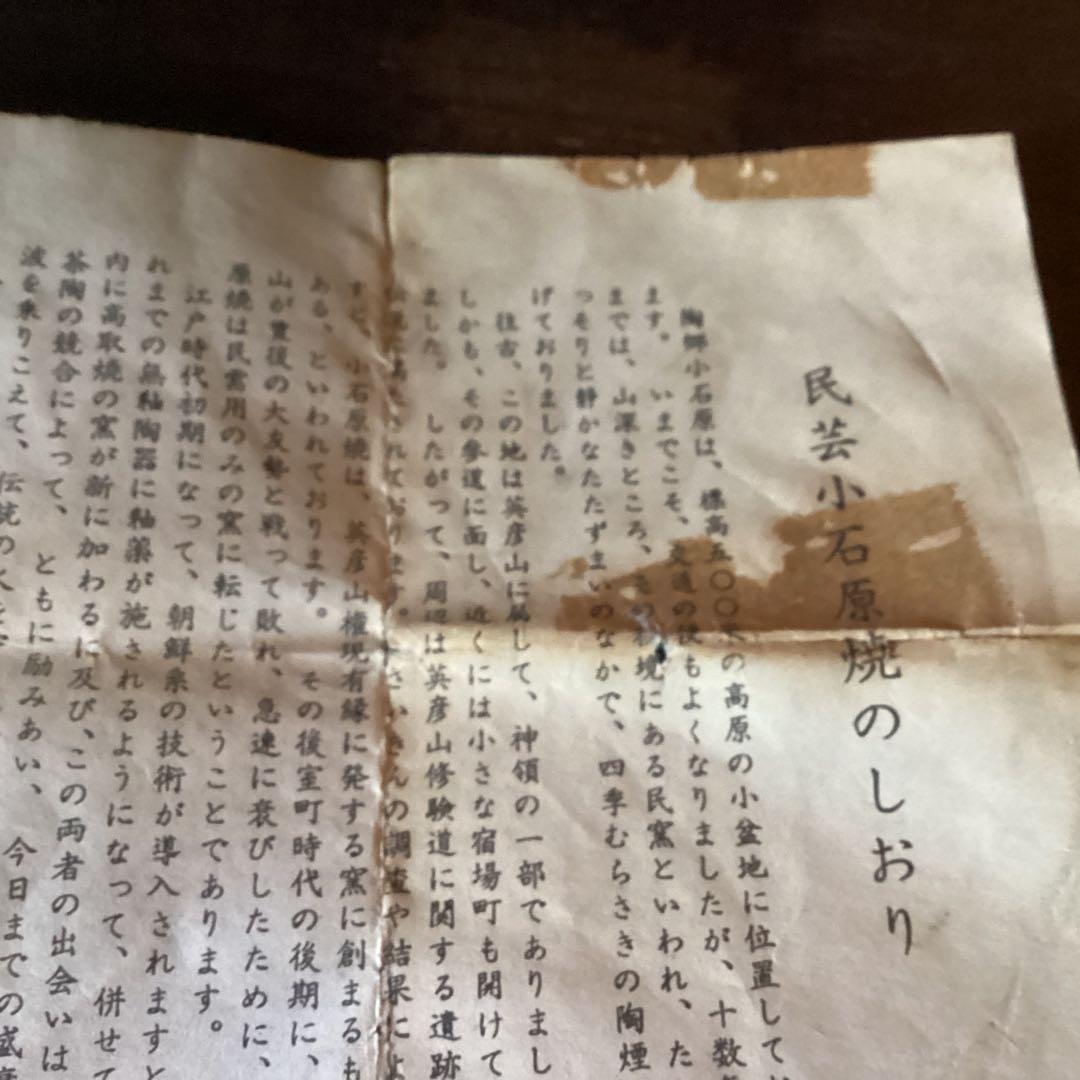 民芸小石原焼のしおり
陶郷小石原は、標高五〇〇米の高原の小盆地に位置してお
ます。いまでこそ、交通の便もよくなりましたが、十数年
までは、山深きところ、その秘境にある民窯といわれ、た
つそりと静かなたたずまいのなかで、四季むらさきの陶煙
げておりました。
往古、この地は英彦山に属して、神領の一部でありまし
しかも、その参道に面し、近くには小さな宿場町も開けて
ました。したがって、周辺は英彦山修験道に関する遺跡
されております。さいきんの調査や結果によ
すと、小石原焼は、英彦山権現有縁に発する窯に創まるも
ある、といわれております。その後室町時代の後期に、
山が豊後の大友勢と戦って敗れ、急速に衰びしたために、
原焼は民需用のみの窯に転じたということであります。
江戸時代初期になって、朝鮮系の技術が導入されますと
れまでの無釉陶器に釉薬が施されるようになって、併せて
内に高取焼の窯が新に加わるに及び、この両者の出会いは
茶陶の競合によって、ともに励みあい、今日までの盛
波を乗りこえて、伝統の火を